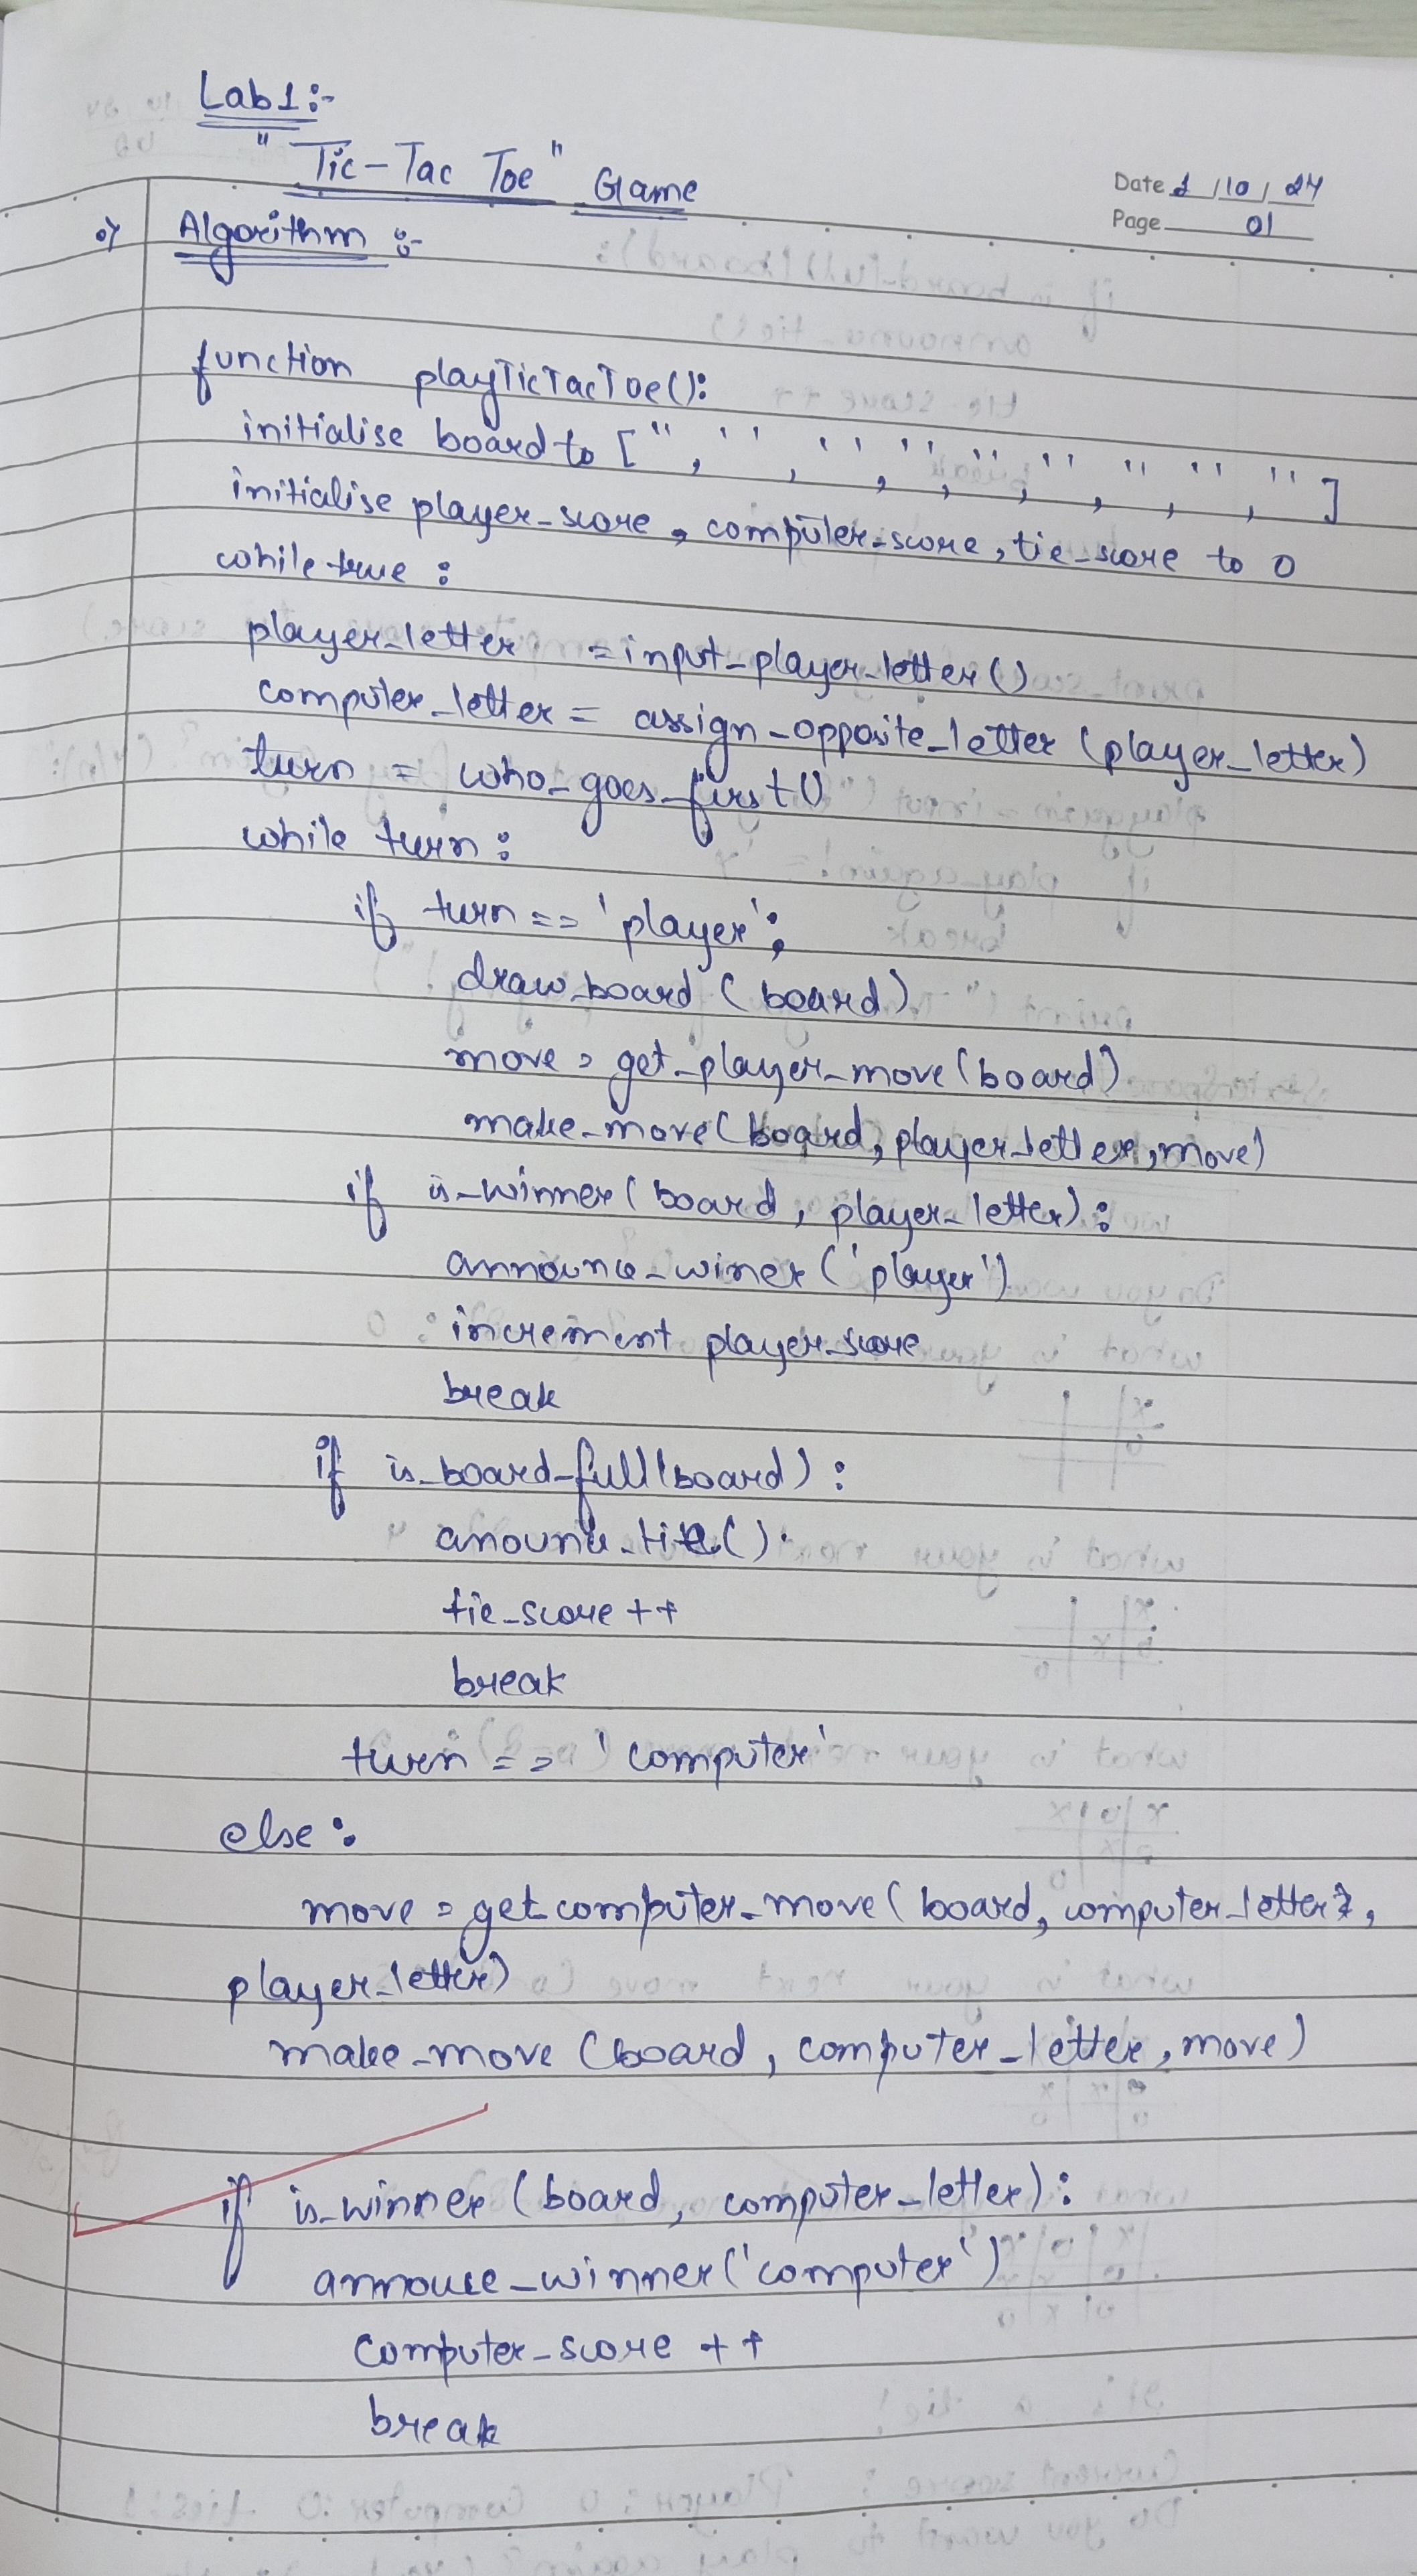 Lab 1:-
"Tic-Tac Toe" Game
Date 1/10/24
Page 01
Algorithm :-
function playTicTacToe():
initialise board to ['', '', '', '', '', '', '', '', '']
initialise player_score, computer_score, tie_score to 0
while true :
player_letter = input_player_letter()
computer_letter = assign_opposite_letter (player_letter)
turn = who_goes_first()
while turn :
if turn == 'player':
draw_board (board)
move = get_player_move(board)
make_move(board, player_letter, move)
if is_winner (board, player_letter):
announce_winer ('player')
increment player_score
break
if is_board_full(board) :
anounce_tie()
tie_score ++
break
turn == 'computer'
else :
move = get_computer_move (board, computer_letter,
player_letter)
make_move (board, computer_letter, move)
if is_winner (board, computer_letter):
annouce_winner('computer')
computer_score ++
break